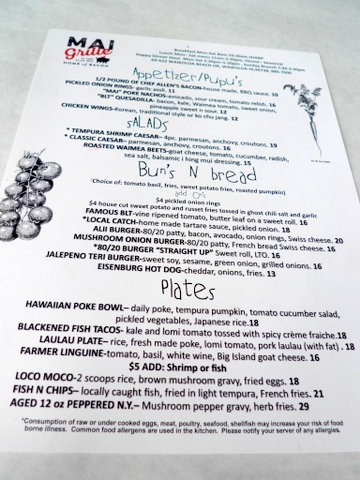 MAI
Grille
HOME of BACON
Appetizer/Pupu's
1/2 POUND OF CHEF ALLEN'S BACON-house made, BBQ sauce. 10
PICKLED ONION RINGS- garlic aioli. 11
"MAI" POKE NACHOS-avocado, sour cream, tomato relish. 16
"BLT" QUESADILLA- bacon, kale, Waimea tomato, sweet onion,
pineapple sweet n sour. 12
CHICKEN WINGS-Korean, traditional style or ko chu jang. 12
SALADS
* TEMPURA SHRIMP CAESAR- 4pc. parmesan, anchovy, croutons. 19
* CLASSIC CAESAR- parmesan, anchovy, croutons. 16
ROASTED WAIMEA BEETS-goat cheese, tomato, cucumber, radish,
sea salt, balsamic i hing mui dressing. 15
Bun's N bread
(Choice of: tomato basil, fries, sweet potato fries, roasted pumpkin)
add On's
$4 pickled onion rings
$4 house cut sweet potato and russet fries tossed in ghost chili salt and garlic
FAMOUS BLT-vine ripened tomato, butter leaf on a sweet roll. 16
*LOCAL CATCH-home made tartare sauce, pickled onion. 18
ALII BURGER-80/20 patty, bacon, avocado, onion rings, Swiss cheese. 20
MUSHROOM ONION BURGER-80/20 patty, French bread Swiss cheese. 16
*80/20 BURGER "STRAIGHT UP" Sweet roll, LTO. 16
JALEPENO TERI BURGER-sweet soy, sesame, green onion, grilled onions. 16
EISENBURG HOT DOG-cheddar, onions, fries. 13
Plates
HAWAIIAN POKE BOWL- daily poke, tempura pumpkin, tomato cucumber salad,
pickled vegetables, Japanese rice.18
BLACKENED FISH TACOS- kale and lomi tomato tossed with spicy crème fraiche.18
LAULAU PLATE- rice, fresh made poke, lomi tomato, pork laulau (with fat) . 18
FARMER LINGUINE-tomato, basil, white wine, Big Island goat cheese. 16
$5 ADD: Shrimp or fish
LOCO MOCO-2 scoops rice, brown mushroom gravy, fried eggs. 18
FISH N CHIPS- locally caught fish, fried in light tempura, French fries. 21
AGED 12 oz PEPPERED N.Y.- Mushroom pepper gravy, herb fries. 29
*Consumption of raw or under cooked eggs, meat, poultry, seafood, shellfish may increase your risk of food
borne illness. Common food allergens are used in the kitchen. Please notify your server of any allergies.